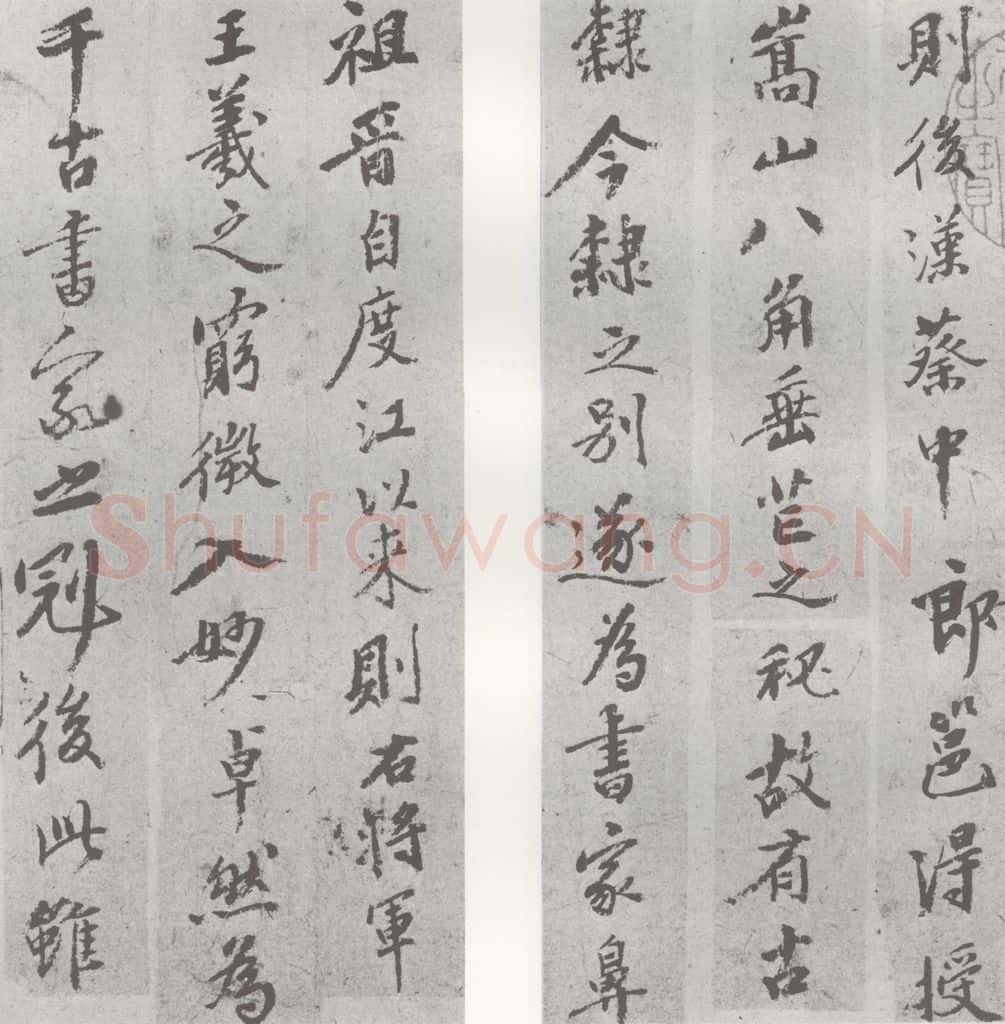 則後漢蔡中郎邕得授
嵩山八角垂芒之秘故有古
隸今隸之別遂為書家鼻
祖晉自度江以来則右將軍
王羲之窮微入妙卓然為
千古書家之冠後此雖
Shufawang.CN